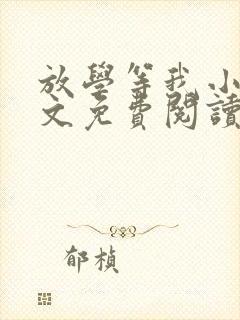 放學等我 小
文免費閱讀
郁楨